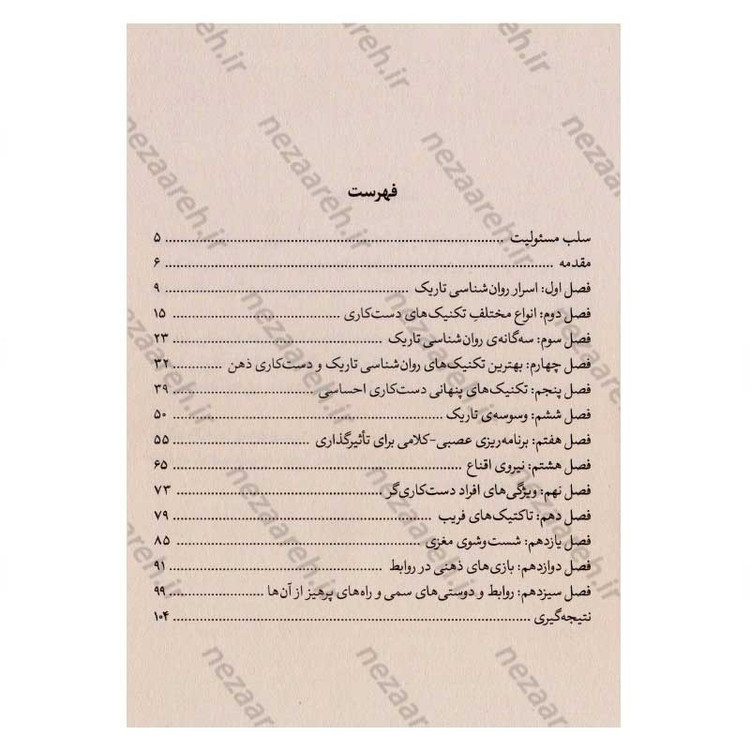 فهرست
سلب مسئولیت ........ ۵
مقدمه ........ ۶
فصل اول: اسرار روان‌شناسی تاریک ........ ۹
فصل دوم: انواع مختلفِ تکنیک‌های دست‌کاری ........ ۱۵
فصل سوم: سه‌گانه‌ی روان‌شناسی تاریک ........ ۲۳
فصل چهارم: بهترین تکنیک‌های روان‌شناسی تاریک و دست‌کاری ذهن ........ ۳۲
فصل پنجم: تکنیک‌های پنهانی دست‌کاری احساسی ........ ۳۹
فصل ششم: وسوسه‌ی تاریک ........ ۵۰
فصل هفتم: برنامه‌ریزی عصبی-کلامی برای تأثیرگذاری ........ ۵۵
فصل هشتم: نیروی اقناع ........ ۶۵
فصل نهم: ویژگی‌های افراد دست‌کاری‌گر ........ ۷۳
فصل دهم: تاکتیک‌های فریب ........ ۷۹
فصل یازدهم: شست‌وشوی مغزی ........ ۸۵
فصل دوازدهم: بازی‌های ذهنی در روابط ........ ۹۱
فصل سیزدهم: روابط و دوستی‌های سمی و راه‌های پرهیز از آن‌ها ........ ۹۹
نتیجه‌گیری ........ ۱۰۴
nezaareh.ir